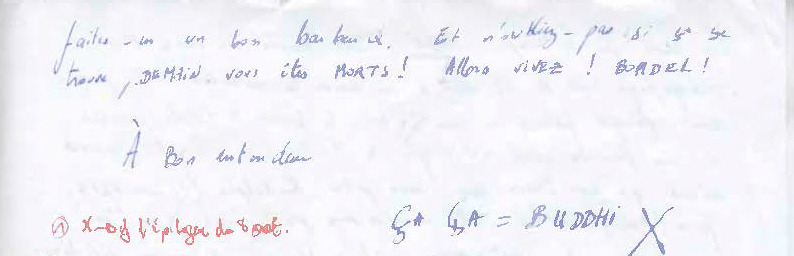 faites-en un bon bonheur. Et n'oubliez-pas si ça se
trouve, DEMAIN vous êtes MORTS! Allons VIVEZ! BORDEL!
À Bon entendeur
l'épilogue du
ÇA ÇA = BUDDHI X